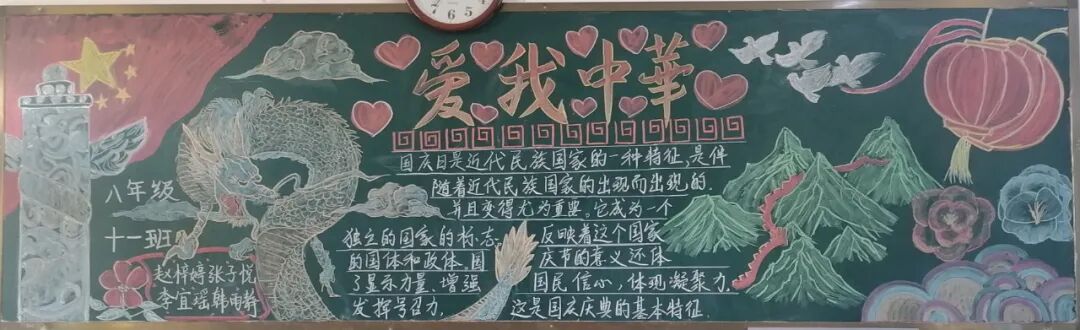 爱我中華
国庆日是近代民族国家的一种特征,是伴
随着近代民族国家的出现而出现的.
并且变得尤为重要。它成为一个
独立的国家的标志。反映着这个国家
的国体和政体.国庆节的意义还体
了显示力量.增强国民信心,体现凝聚力
发挥号召力,这是国庆庆典的基本特征.
八年级
十一班
张子悦
李宜瑶韩雨
7 6 5